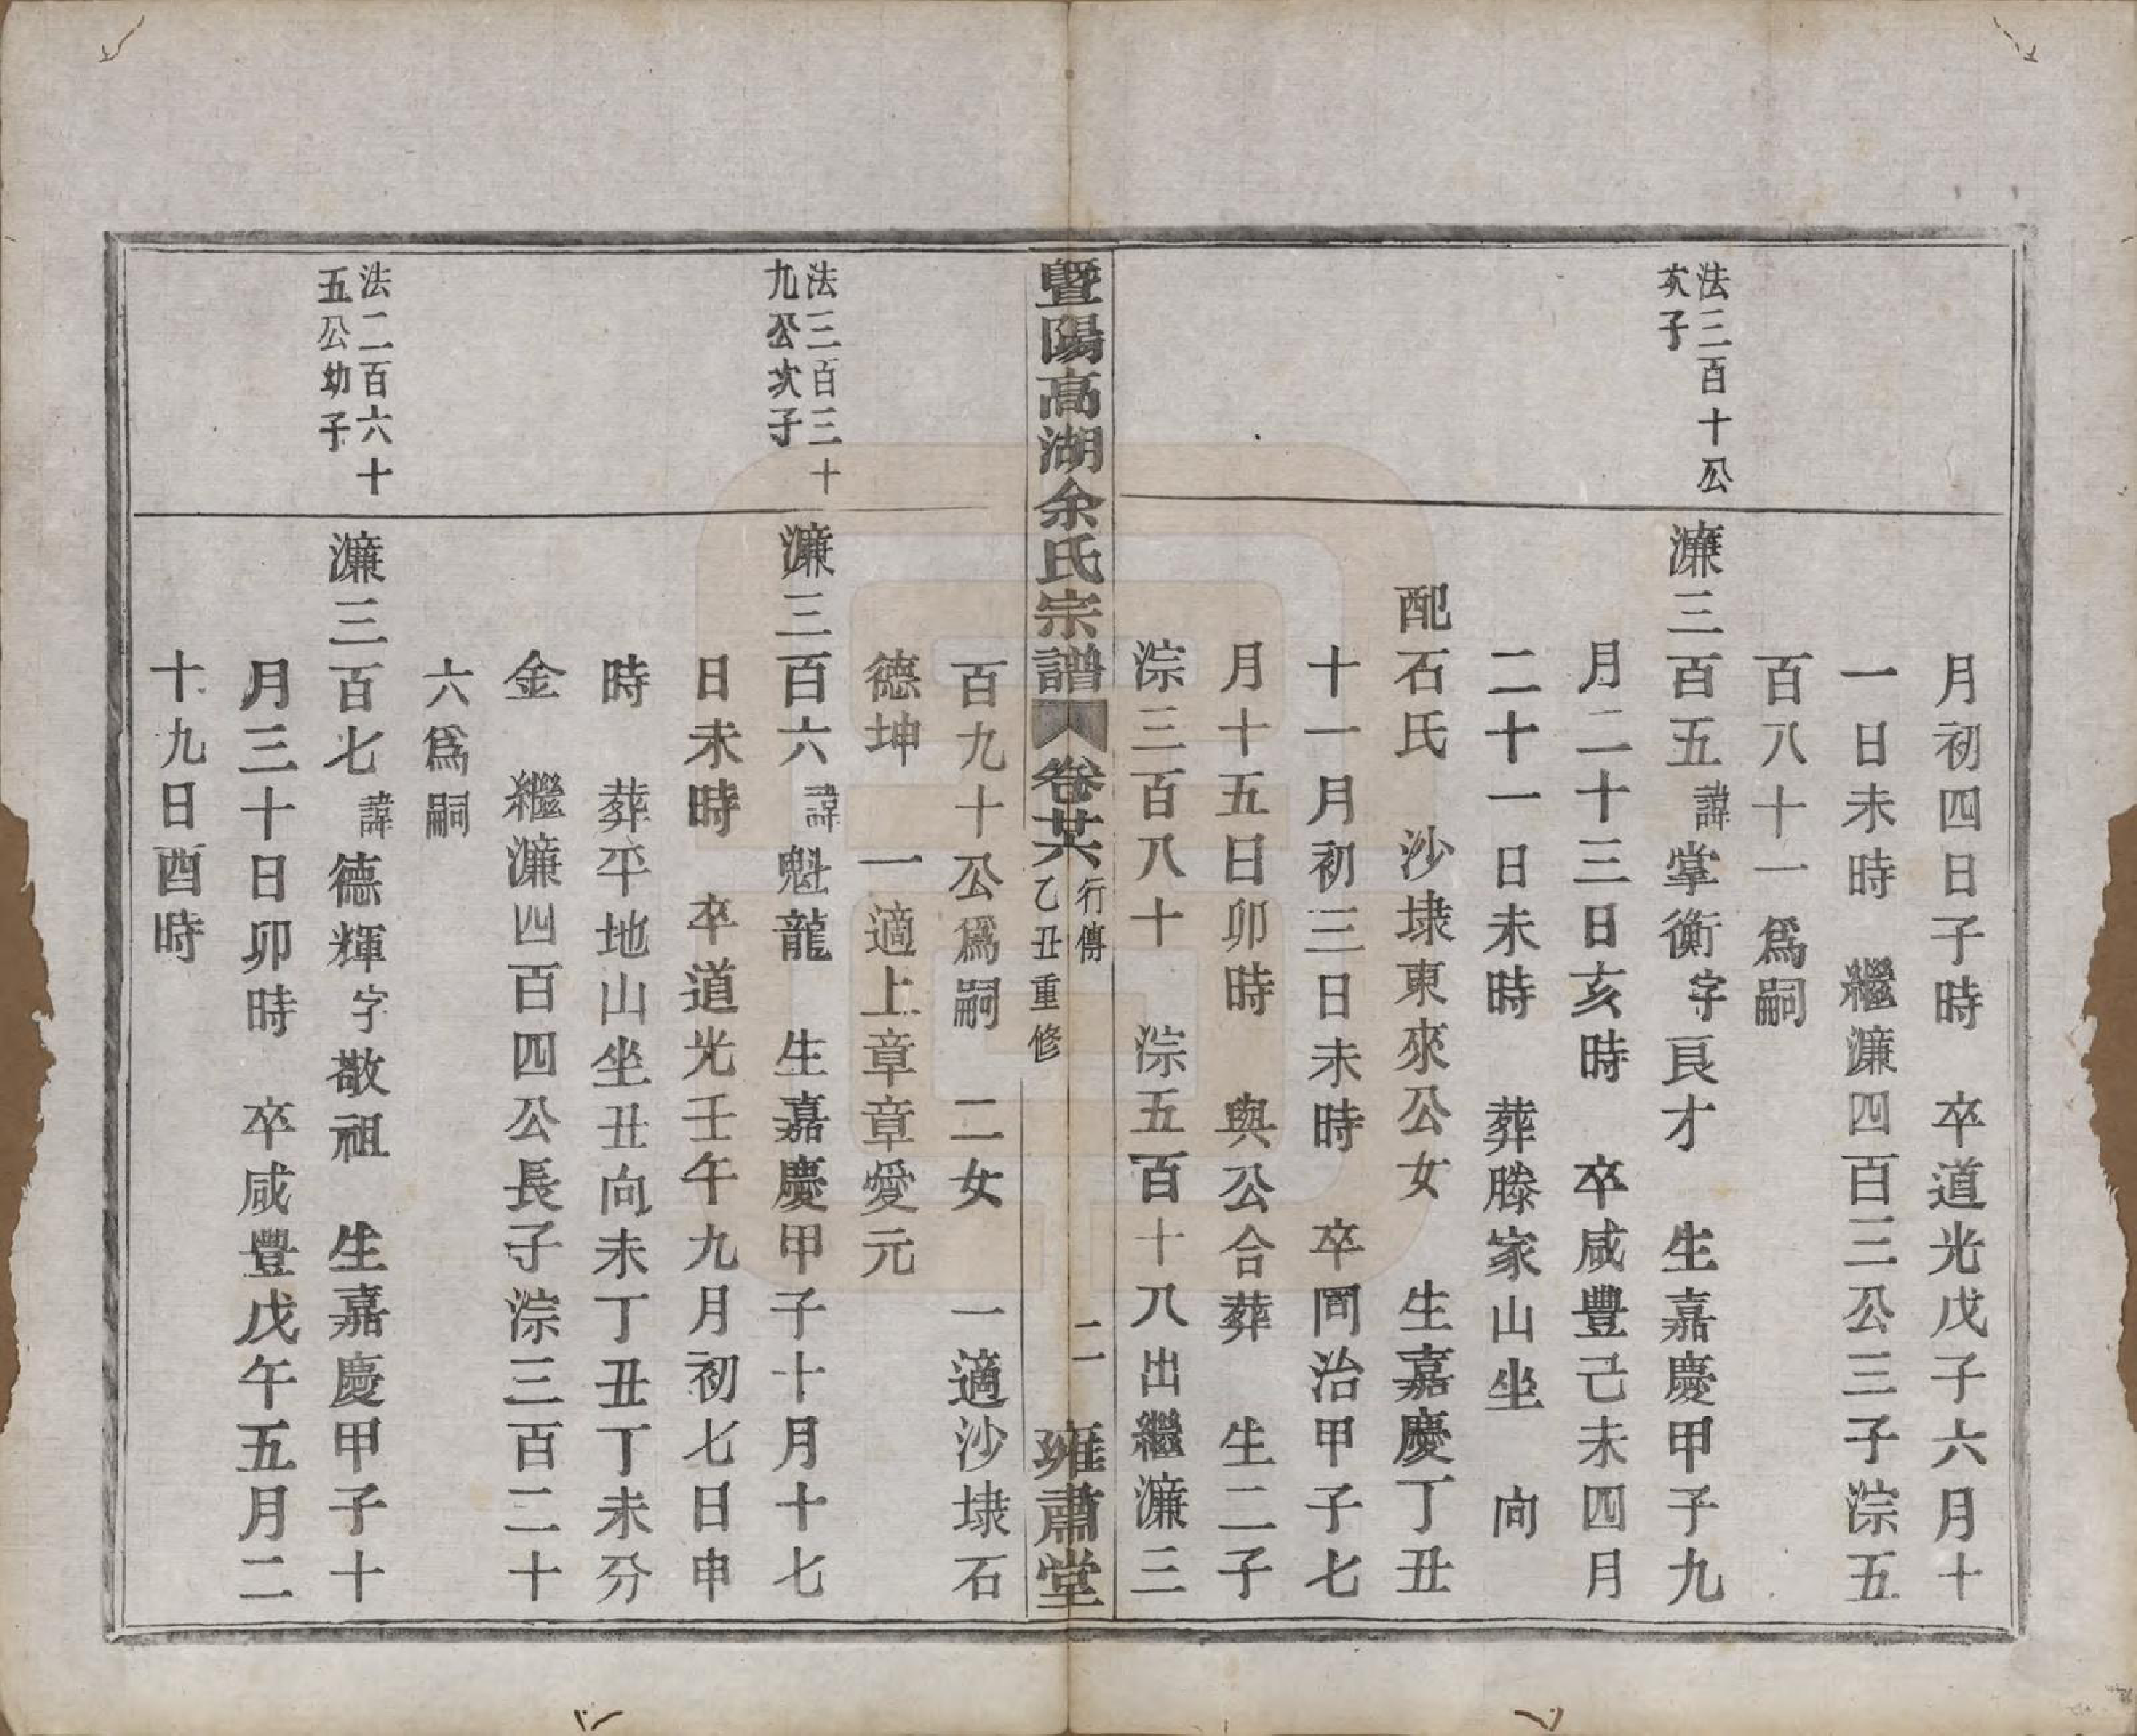 月初四日子時　卒道光戊子六月十
一日未時　繼濂四百三公三子淙五
百八十一爲嗣
法三百十公
次子
濂三百五諱掌衡字良才　生嘉慶甲子九
月二十三日亥時　卒咸豐己未四月
二十一日未時　葬滕家山坐　向
配石氏　沙埭東來公女　生嘉慶丁丑
十一月初三日未時　卒同治甲子七
月十五日卯時　與公合葬　生二子
淙三百八十　淙五百十八出繼濂三
暨陽高湖余氏宗譜　卷廿六　行傳　乙丑重修　二　雍肅堂
百九十公爲嗣　二女　一適沙埭石
德坤　一適上章章愛元
法三百三十
九公次子
濂三百六諱魁龍　生嘉慶甲子十月十七
日未時　卒道光壬午九月初七日申
時　葬平地山坐丑向未丁丑丁未分
金　繼濂四百四公長子淙三百二十
六爲嗣
法二百六十
五公幼子
濂三百七諱德輝字敬祖　生嘉慶甲子十
月三十日卯時　卒咸豐戊午五月二
十九日酉時